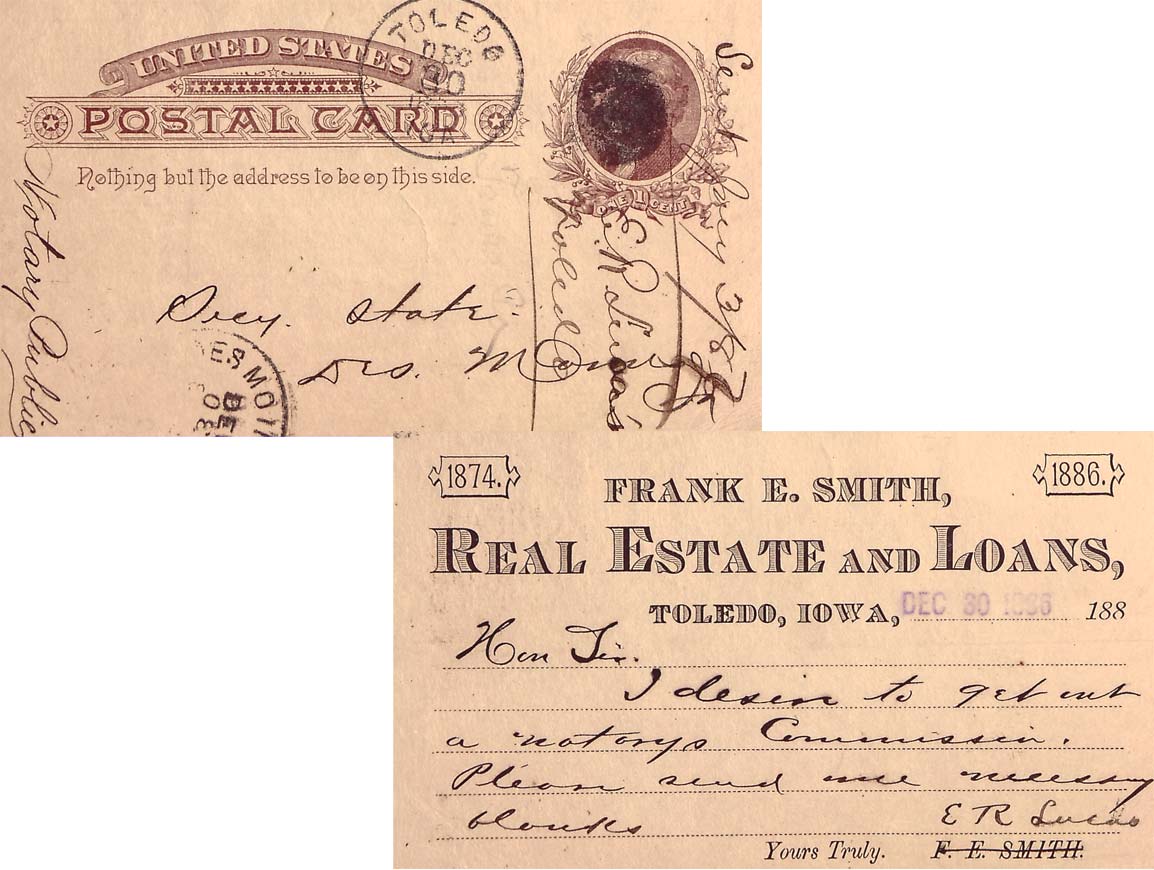 UNITED STATES
POSTAL CARD
Nothing but the address to be on this side.
ONE 1 CENT
TOLEDO
DEC
30
IA
Notary Public
Secy. State.
Des Moines
ES MOI
DE
Sent
3/87
E R Lucas
Toledo
1874.
1886.
FRANK E. SMITH,
REAL ESTATE AND LOANS,
TOLEDO, IOWA, DEC 30 1886 188
Hon Sir.
I desire to get out
a notarys Commission.
Please send me necessary
blanks E R Lucas
Yours Truly. F. E. SMITH.